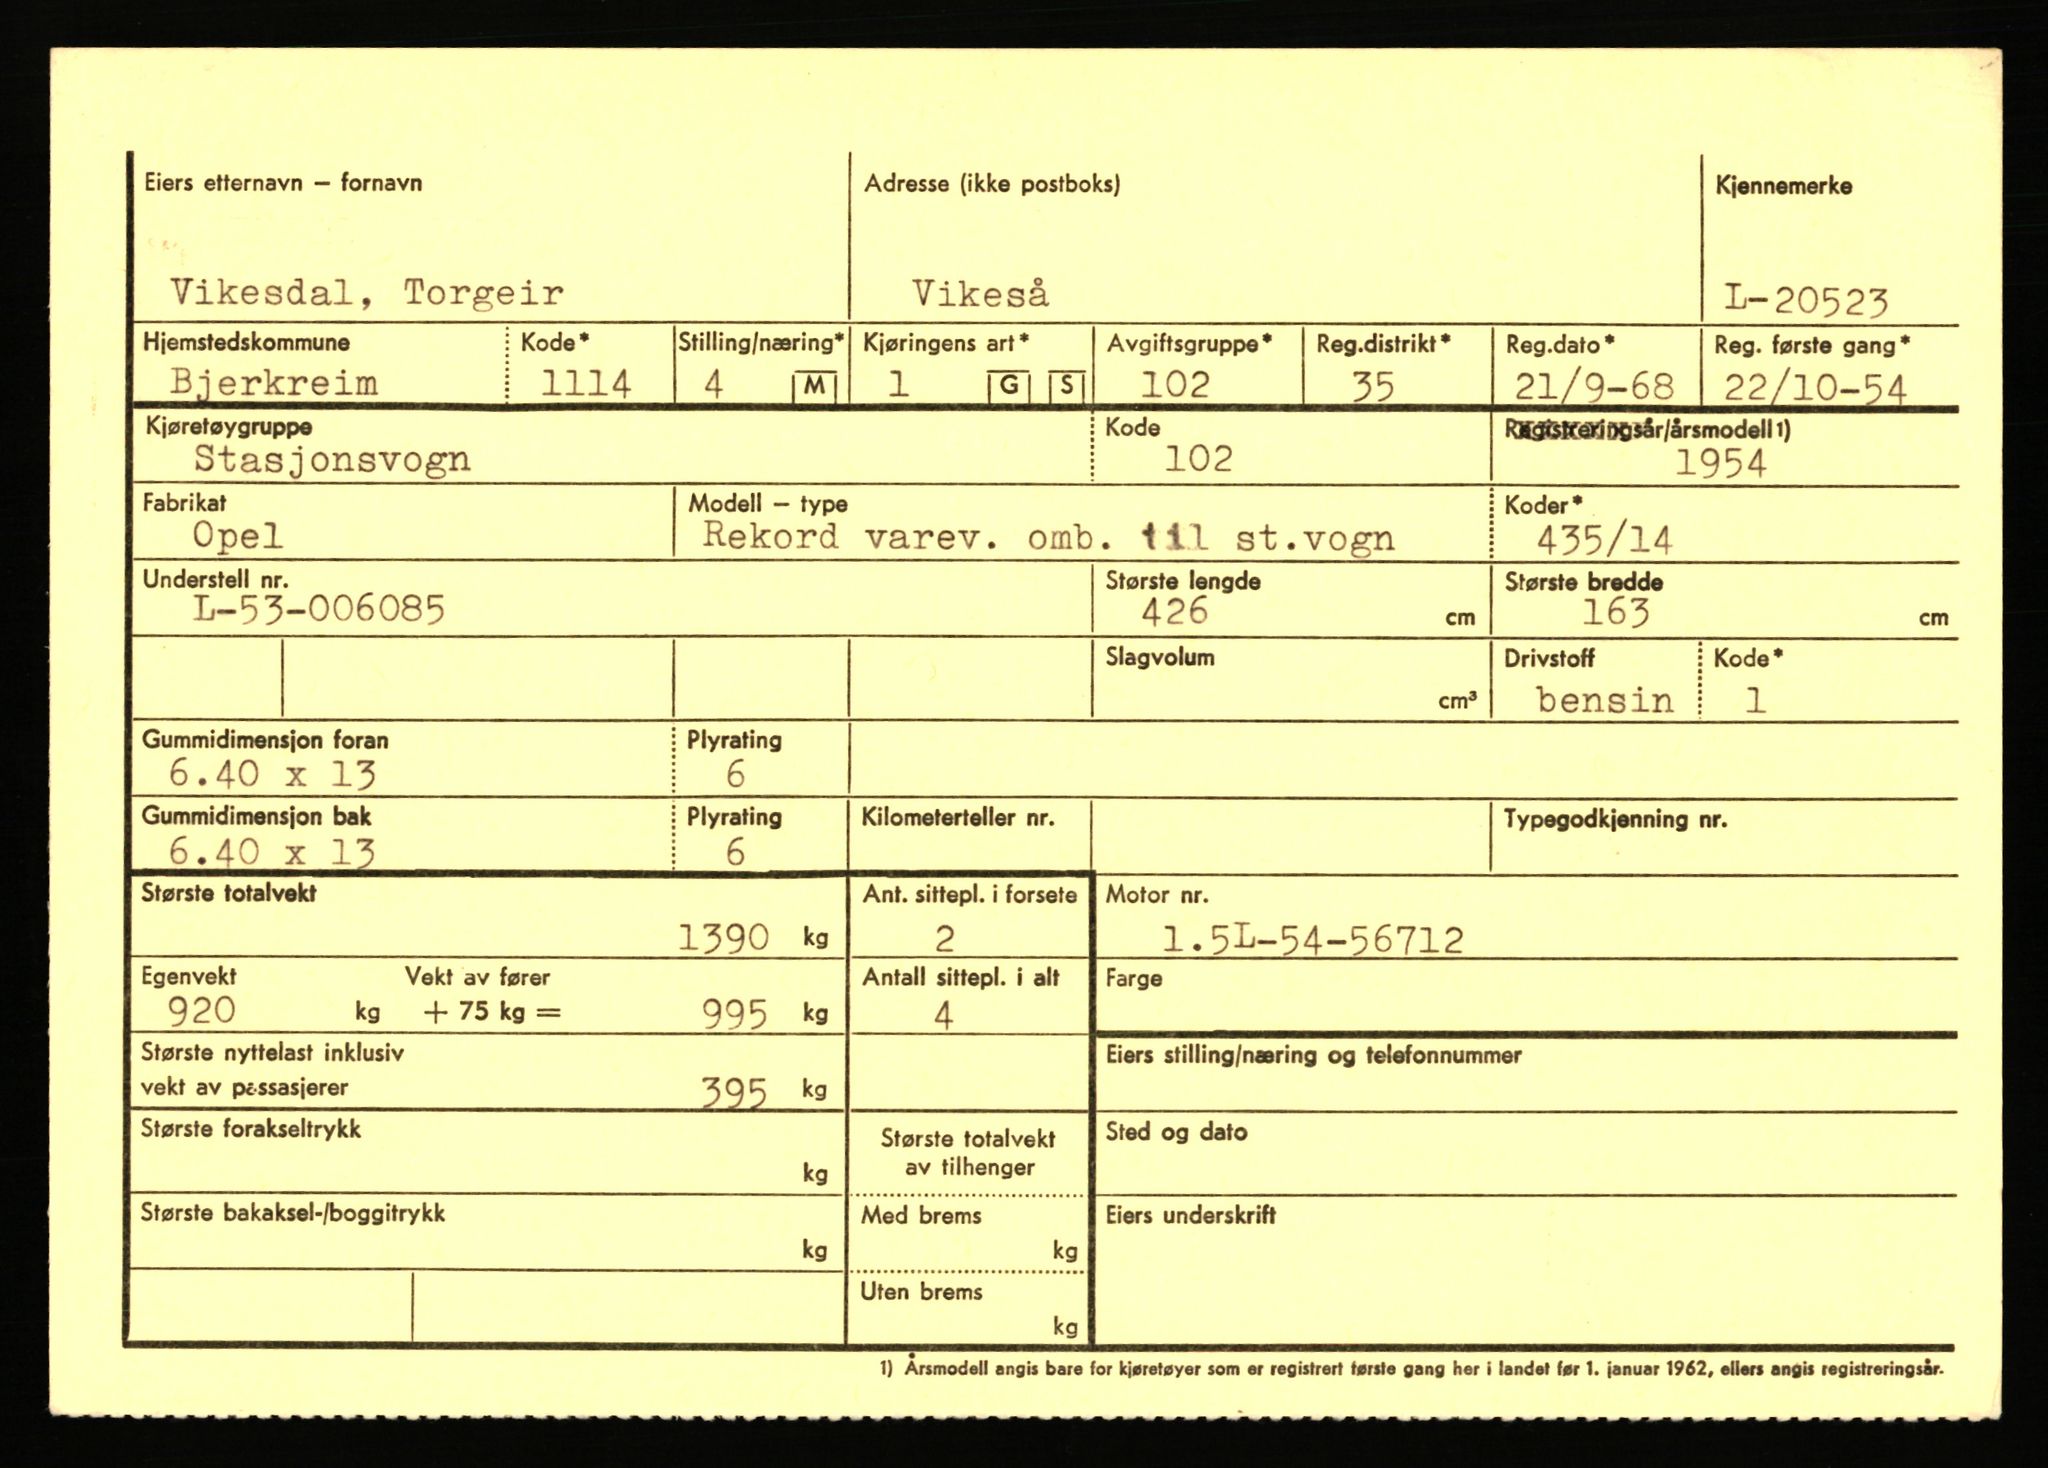 Eiers etternavn – fornavn Adresse (ikke postboks) Kjennemerke
Vikesdal, Torgeir Vikeså L-20523
Hjemstedskommune Kode* Stilling/næring* Kjøringens art* Avgiftsgruppe* Reg.distrikt* Reg.dato* Reg. første gang*
Bjerkreim 1114 4 M 1 G S 102 35 21/9-68 22/10-54
Kjøretøygruppe Kode Registreringsår/årsmodell 1)
Stasjonsvogn 102 1954
Fabrikat Modell – type Koder*
Opel Rekord varev. omb. til st.vogn 435/14
Understell nr. Største lengde Største bredde
L-53-006085 426 cm 163 cm
Slagvolum Drivstoff Kode*
cm³ bensin 1
Gummidimensjon foran Plyrating
6.40 x 13 6
Gummidimensjon bak Plyrating Kilometerteller nr. Typegodkjenning nr.
6.40 x 13 6
Største totalvekt Ant. sittepl. i forsete Motor nr.
1390 kg 2 1.5L-54-56712
Egenvekt Vekt av fører Antall sittepl. i alt Farge
920 kg + 75 kg = 995 kg 4
Største nyttelast inklusiv Eiers stilling/næring og telefonnummer
vekt av passasjerer 395 kg
Største forakseltrykk Største totalvekt Sted og dato
kg av tilhenger
Største bakaksel-/boggitrykk Med brems Eiers underskrift
kg kg
Uten brems
kg
1) Årsmodell angis bare for kjøretøyer som er registrert første gang her i landet før 1. januar 1962, ellers angis registreringsår.